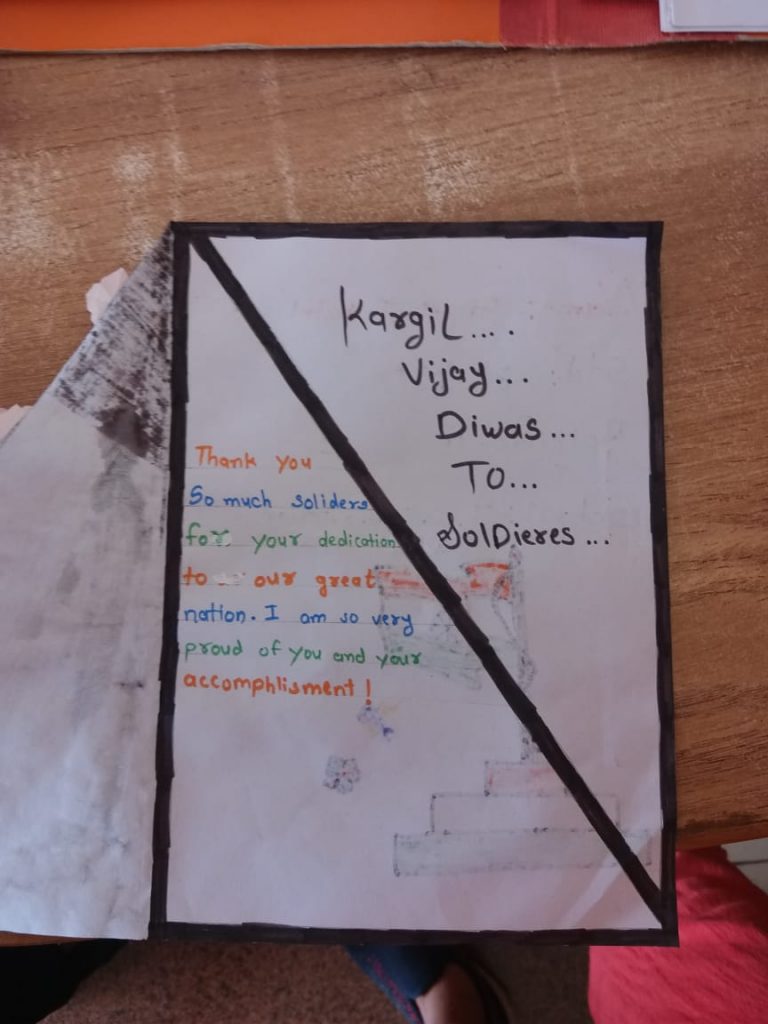 Kargil....
Vijay...
Diwas...
To...
SolDieres...
Thank you
So much soliders
for your dedication
to our great
nation. I am so very
proud of you and your
accomphlisment!